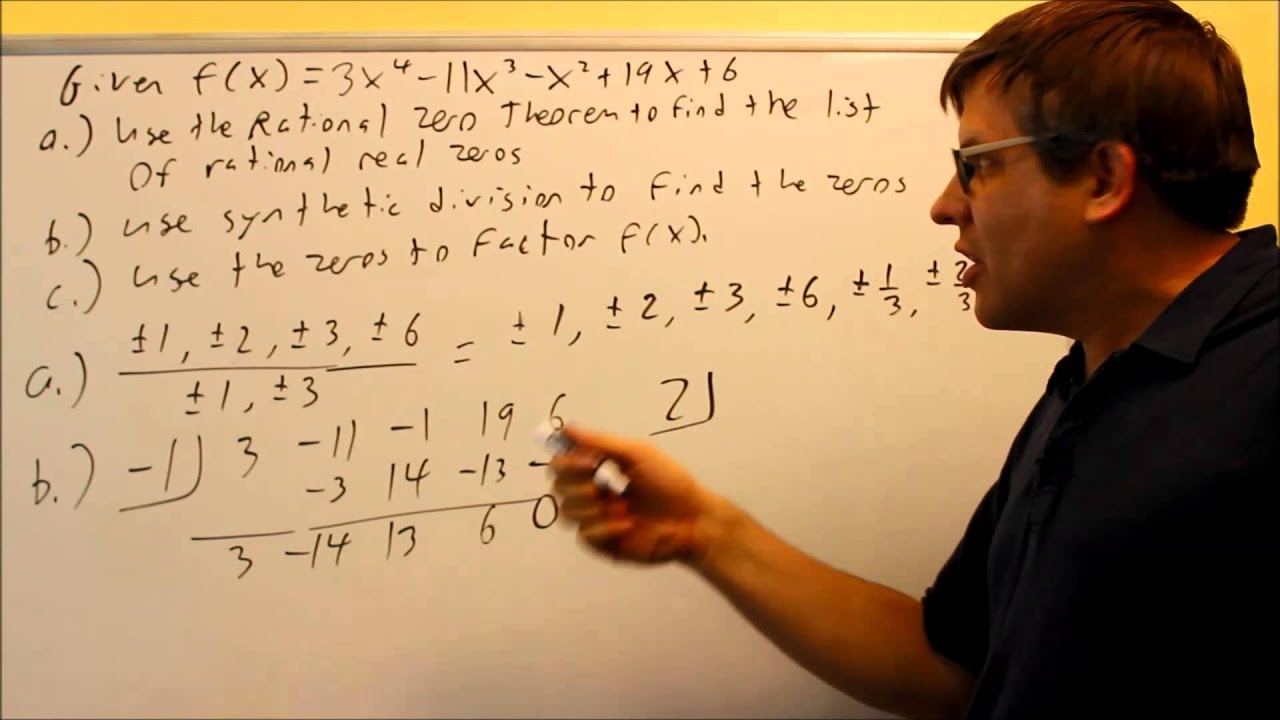 Given f(x) = 3x⁴ - 11x³ - x² + 19x + 6
a.) Use the Rational zero Theorem to find the list
Of rational real zeros
b.) use synthetic division to find the zeros
c.) use the zeros to factor f(x).
a.) ±1, ±2, ±3, ±6 / ±1, ±3 = ±1, ±2, ±3, ±6, ±1/3, ±2/3
b.) -1 | 3 -11 -1 19 6
-3 14 -13 -
3 -14 13 6 0
2 |